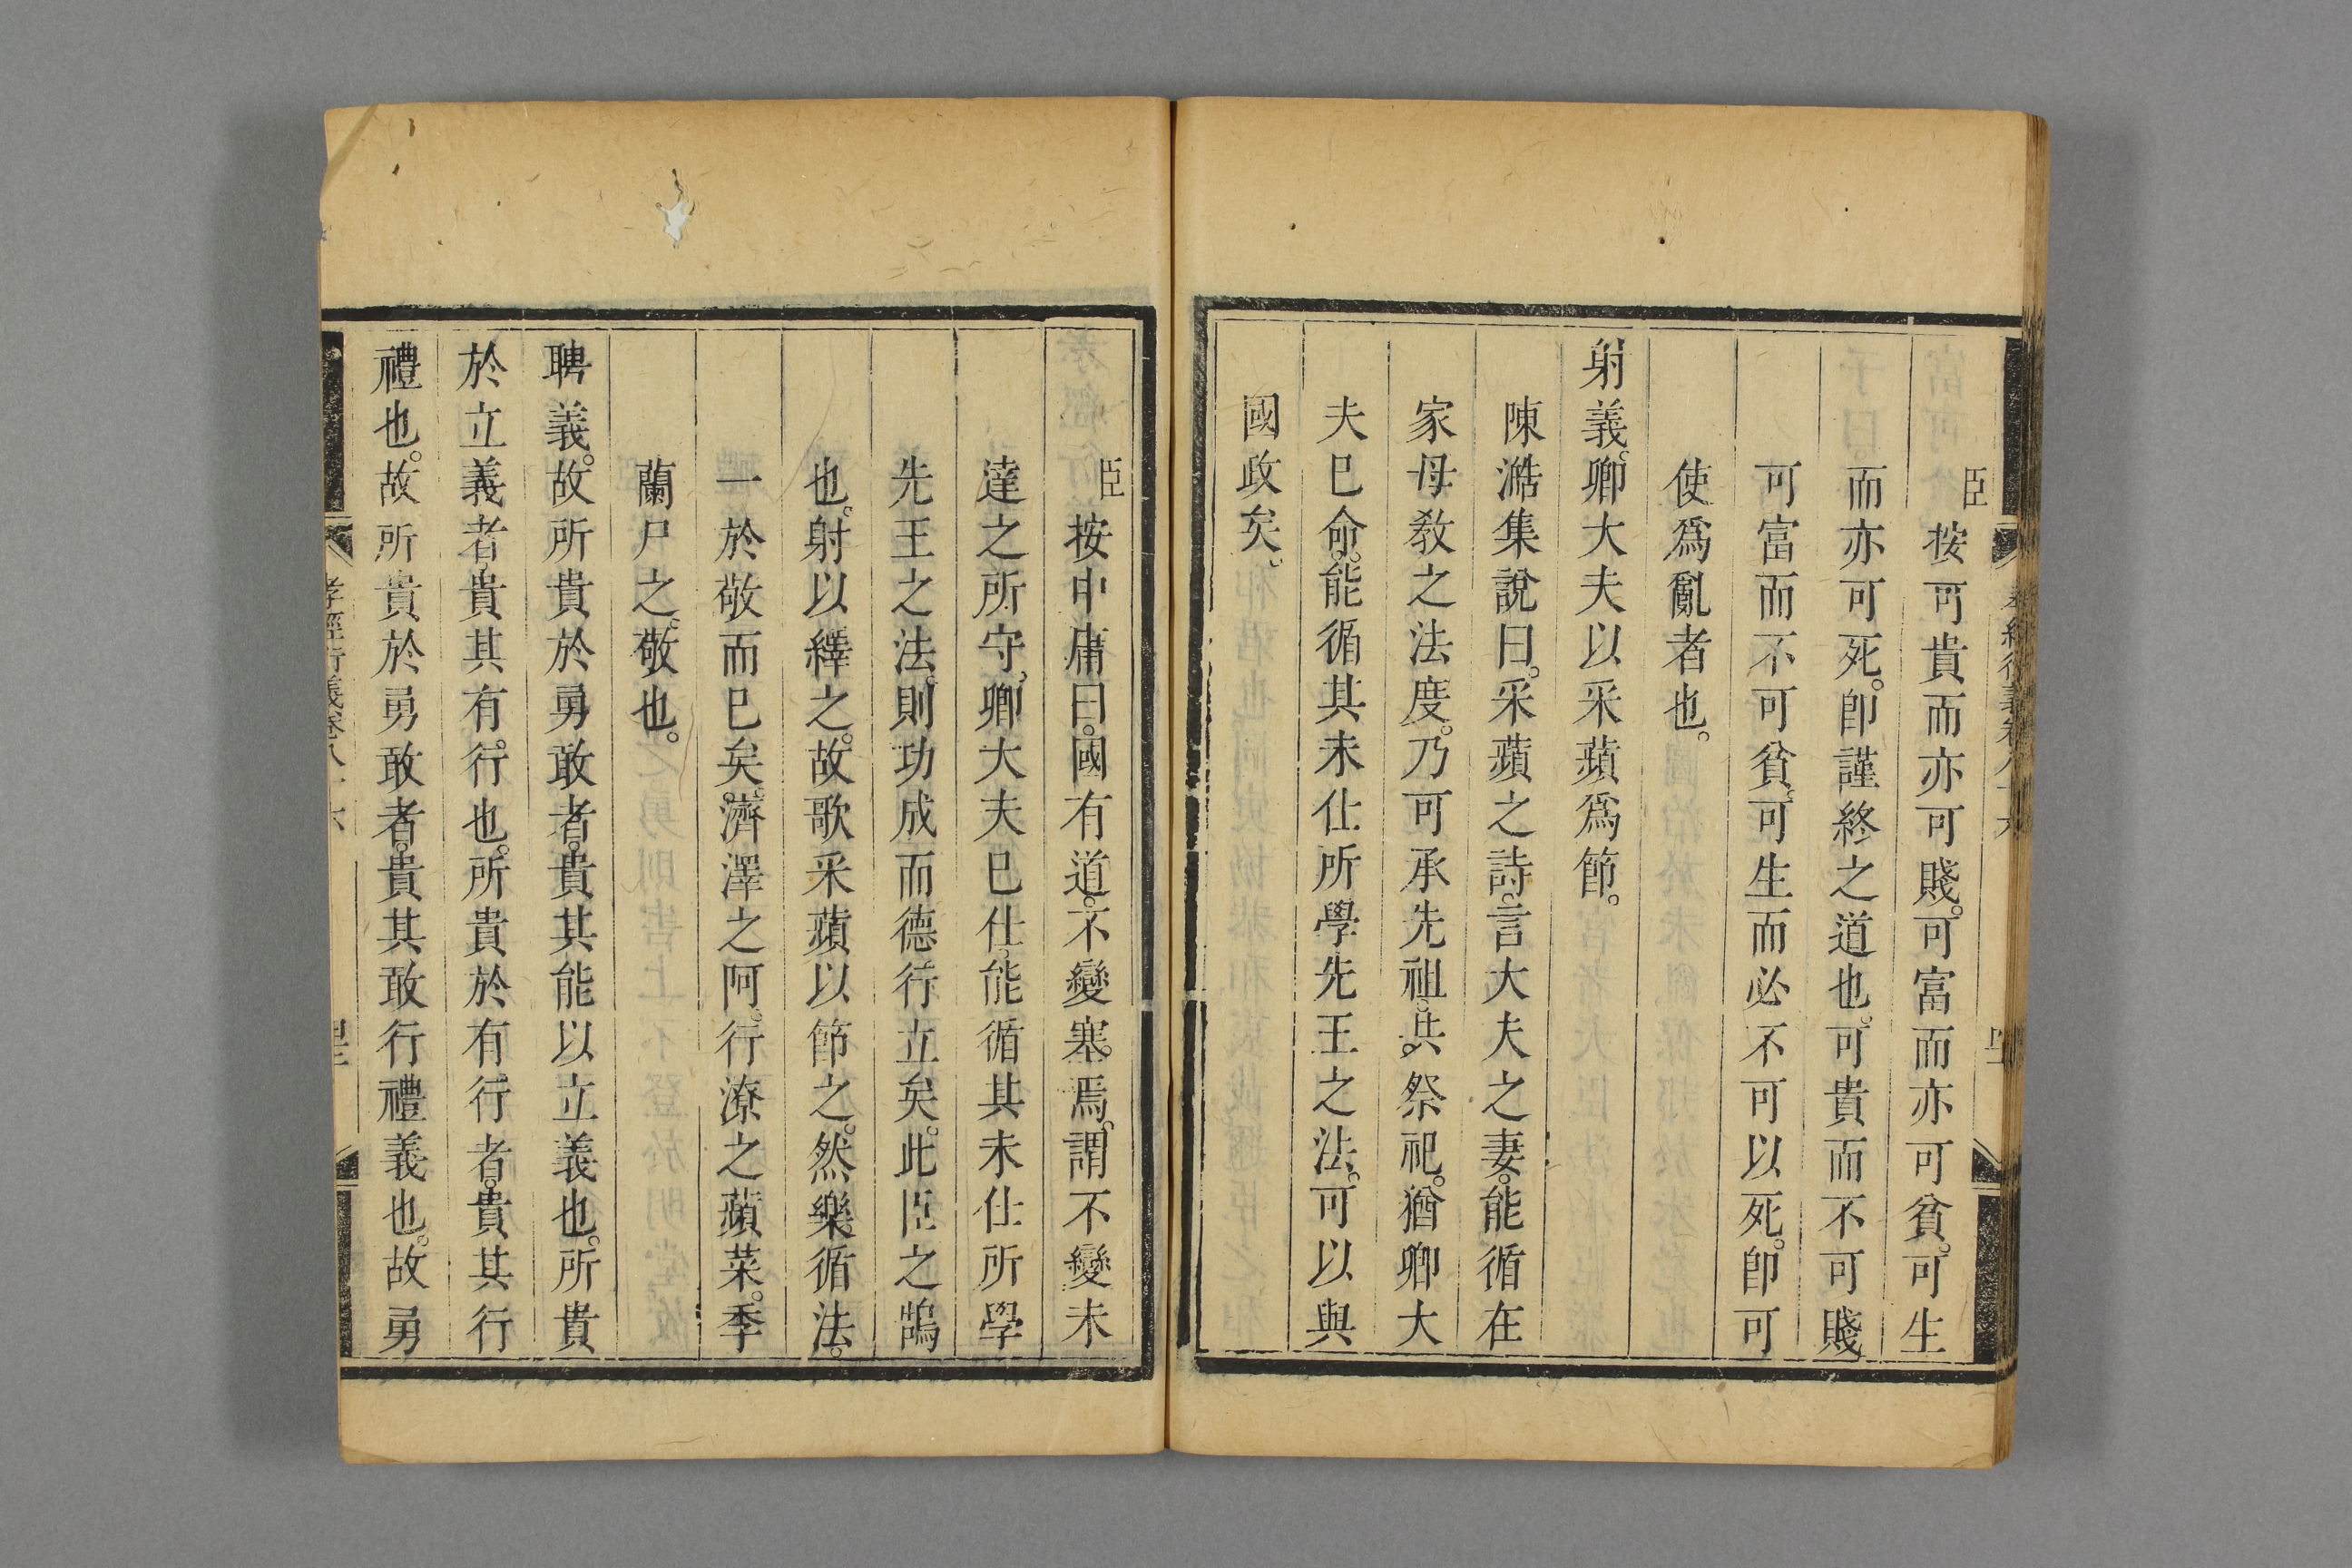 臣按可貴而亦可賤。可富而亦可貧。可生
而亦可死。卽謹終之道也。可貴而不可賤
可富而不可貧。可生而必不可以死。卽可
使爲亂者也。
射義。卿大夫以采蘋爲節。
陳澔集說曰。采蘋之詩。言大夫之妻。能循在
家母教之法度。乃可承先祖。共祭祀。猶卿大
夫巳命。能循其未仕所學先王之法。可以與
國政矣。
臣按中庸曰。國有道。不變塞焉。謂不變未
達之所守。卿大夫巳仕。能循其未仕所學
先王之法。則功成而德行立矣。此臣之鵠
也。射以繹之。故歌采蘋以節之。然樂循法。
一於敬而巳矣。濟澤之阿。行潦之蘋菜。季
蘭尸之。敬也。
聘義。故所貴於勇敢者。貴其能以立義也。所貴
於立義者。貴其有行也。所貴於有行者。貴其行
禮也。故所貴於勇敢者。貴其敢行禮義也。故勇
孝經衍義卷八十六